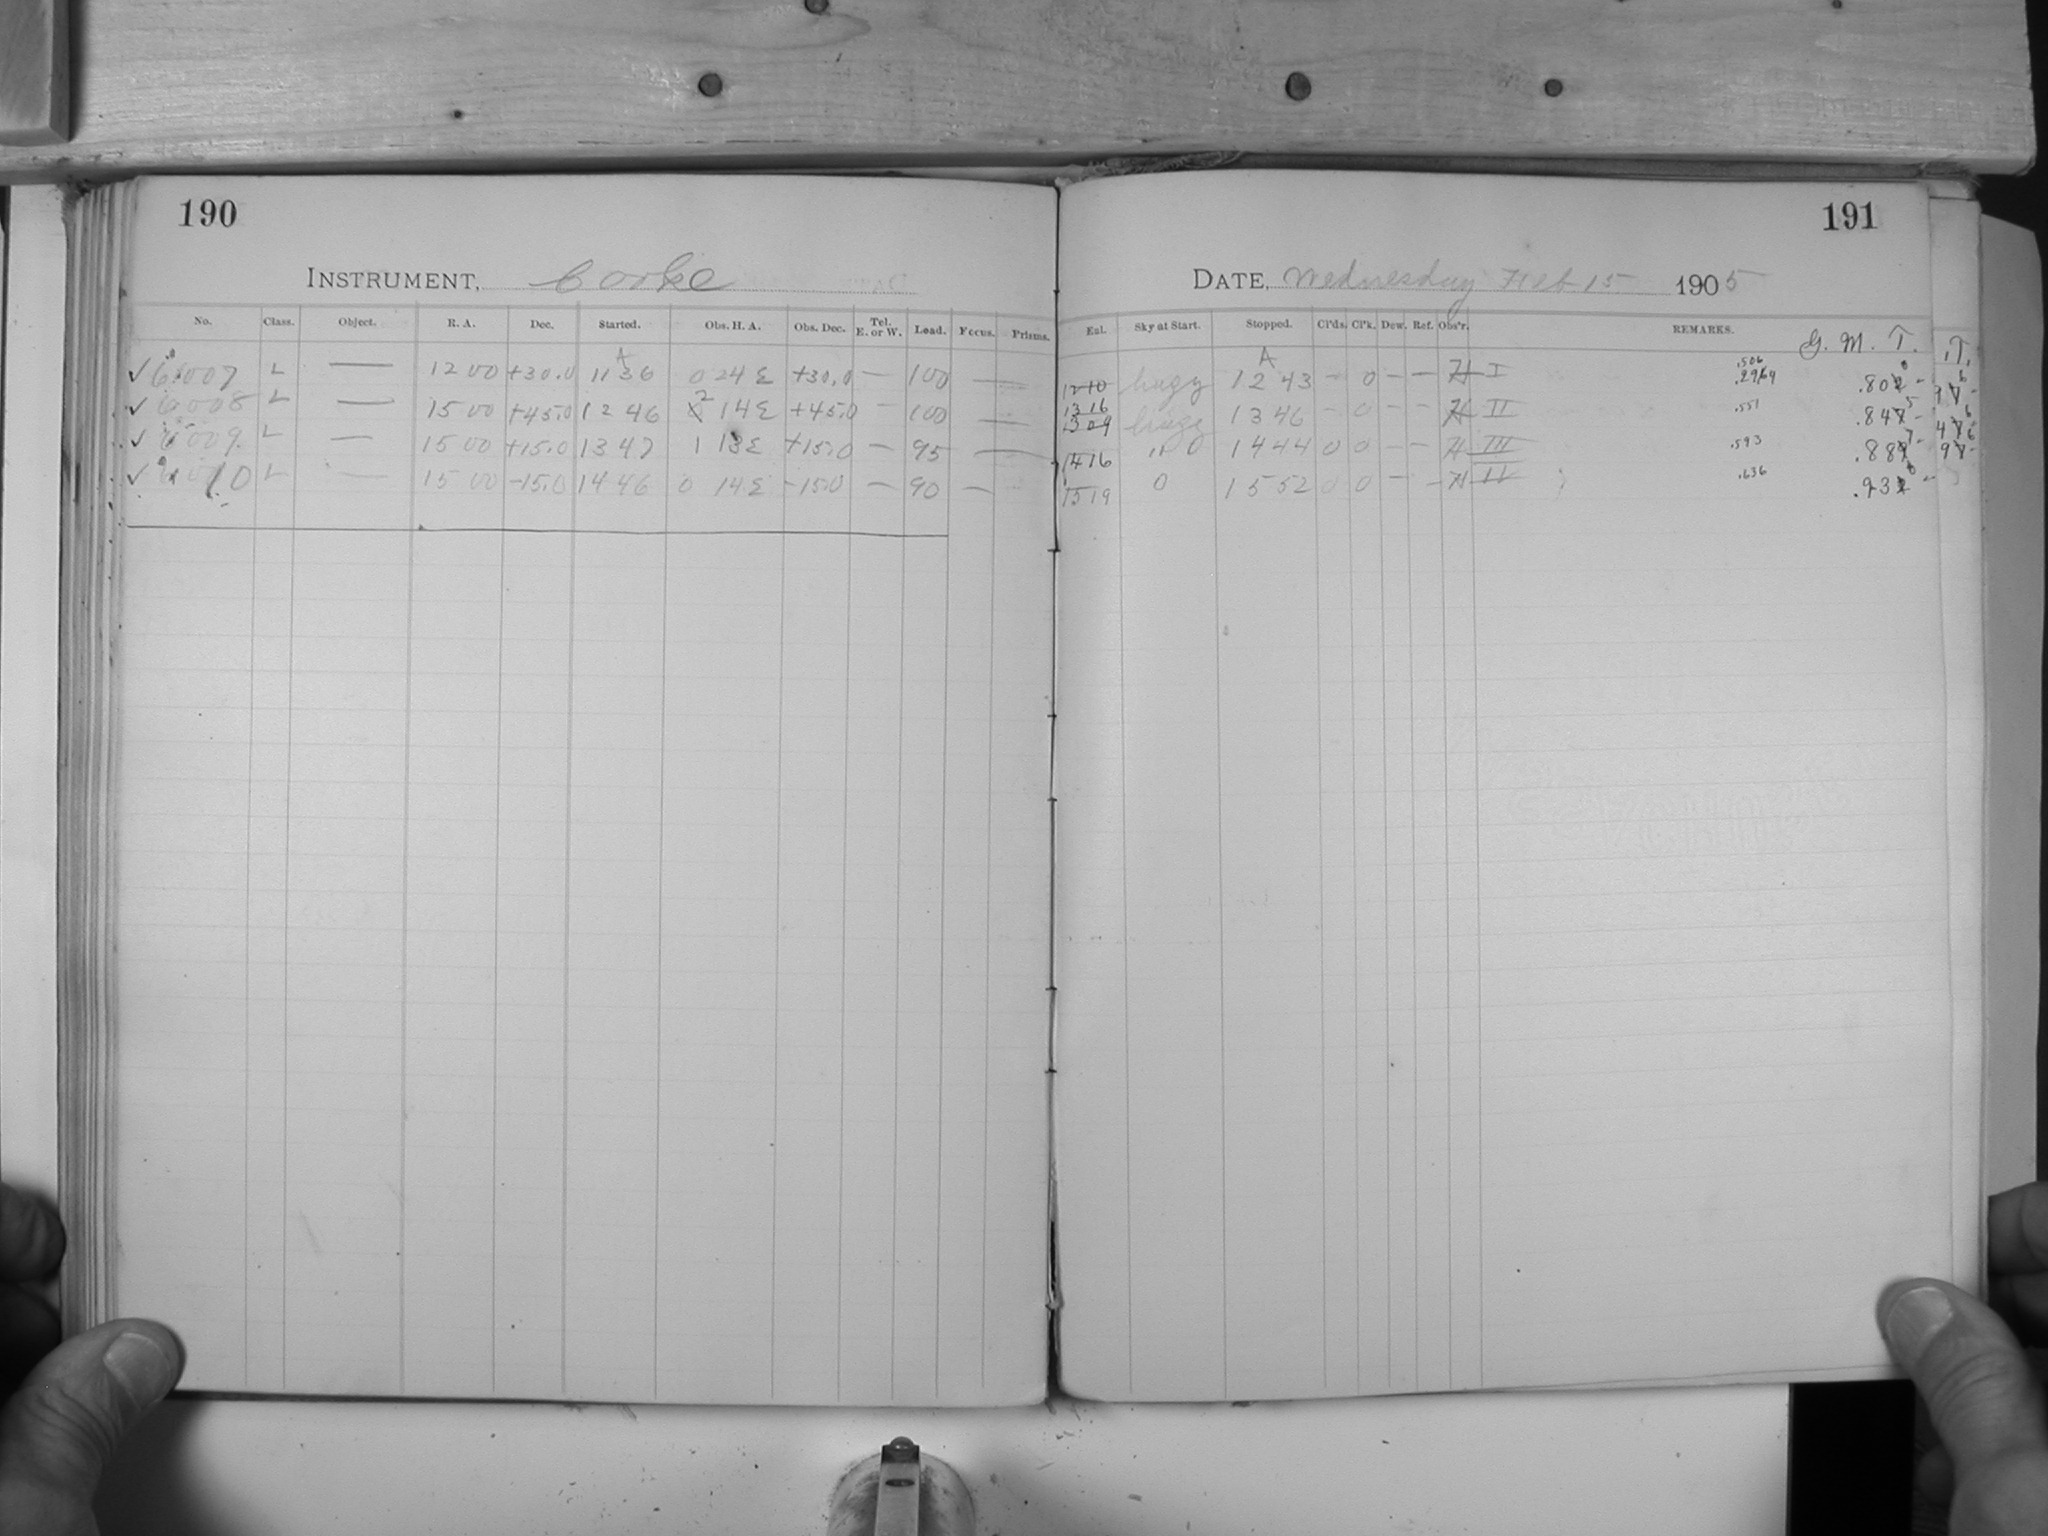 190
INSTRUMENT, Cooke
No. Class. Object. R. A. Dec. Started. Obs. H. A. Obs. Dec. Tel. E. or W. Load. Focus. Prisms.
A
✓ 6007 L — 12 00 +30.0 11 36 0 24 E +30.0 — 100 —
✓ 6008 L — 15 00 +45.0 12 46 2 14 E +45.0 — 100 —
✓ 6009 L — 15 00 +15.0 13 47 1 13 E +15.0 — 95 —
✓ 6010 L — 15 00 -15.0 14 46 0 14 E -15.0 — 90 —
191
DATE, Wednesday Feb 15 1905
Exl. Sky at Start. Stopped. Cl'ds. Cl'k. Dew. Ref. Obs'r. REMARKS.
G. M. T.
A
1210 hazy 12 43 - 0 - - H I .506
1316
1309 13 46 - 0 - - H II .551
1416 " 0 14 44 0 0 - - H III .593
1519 0 15 52 0 0 - - H II .636